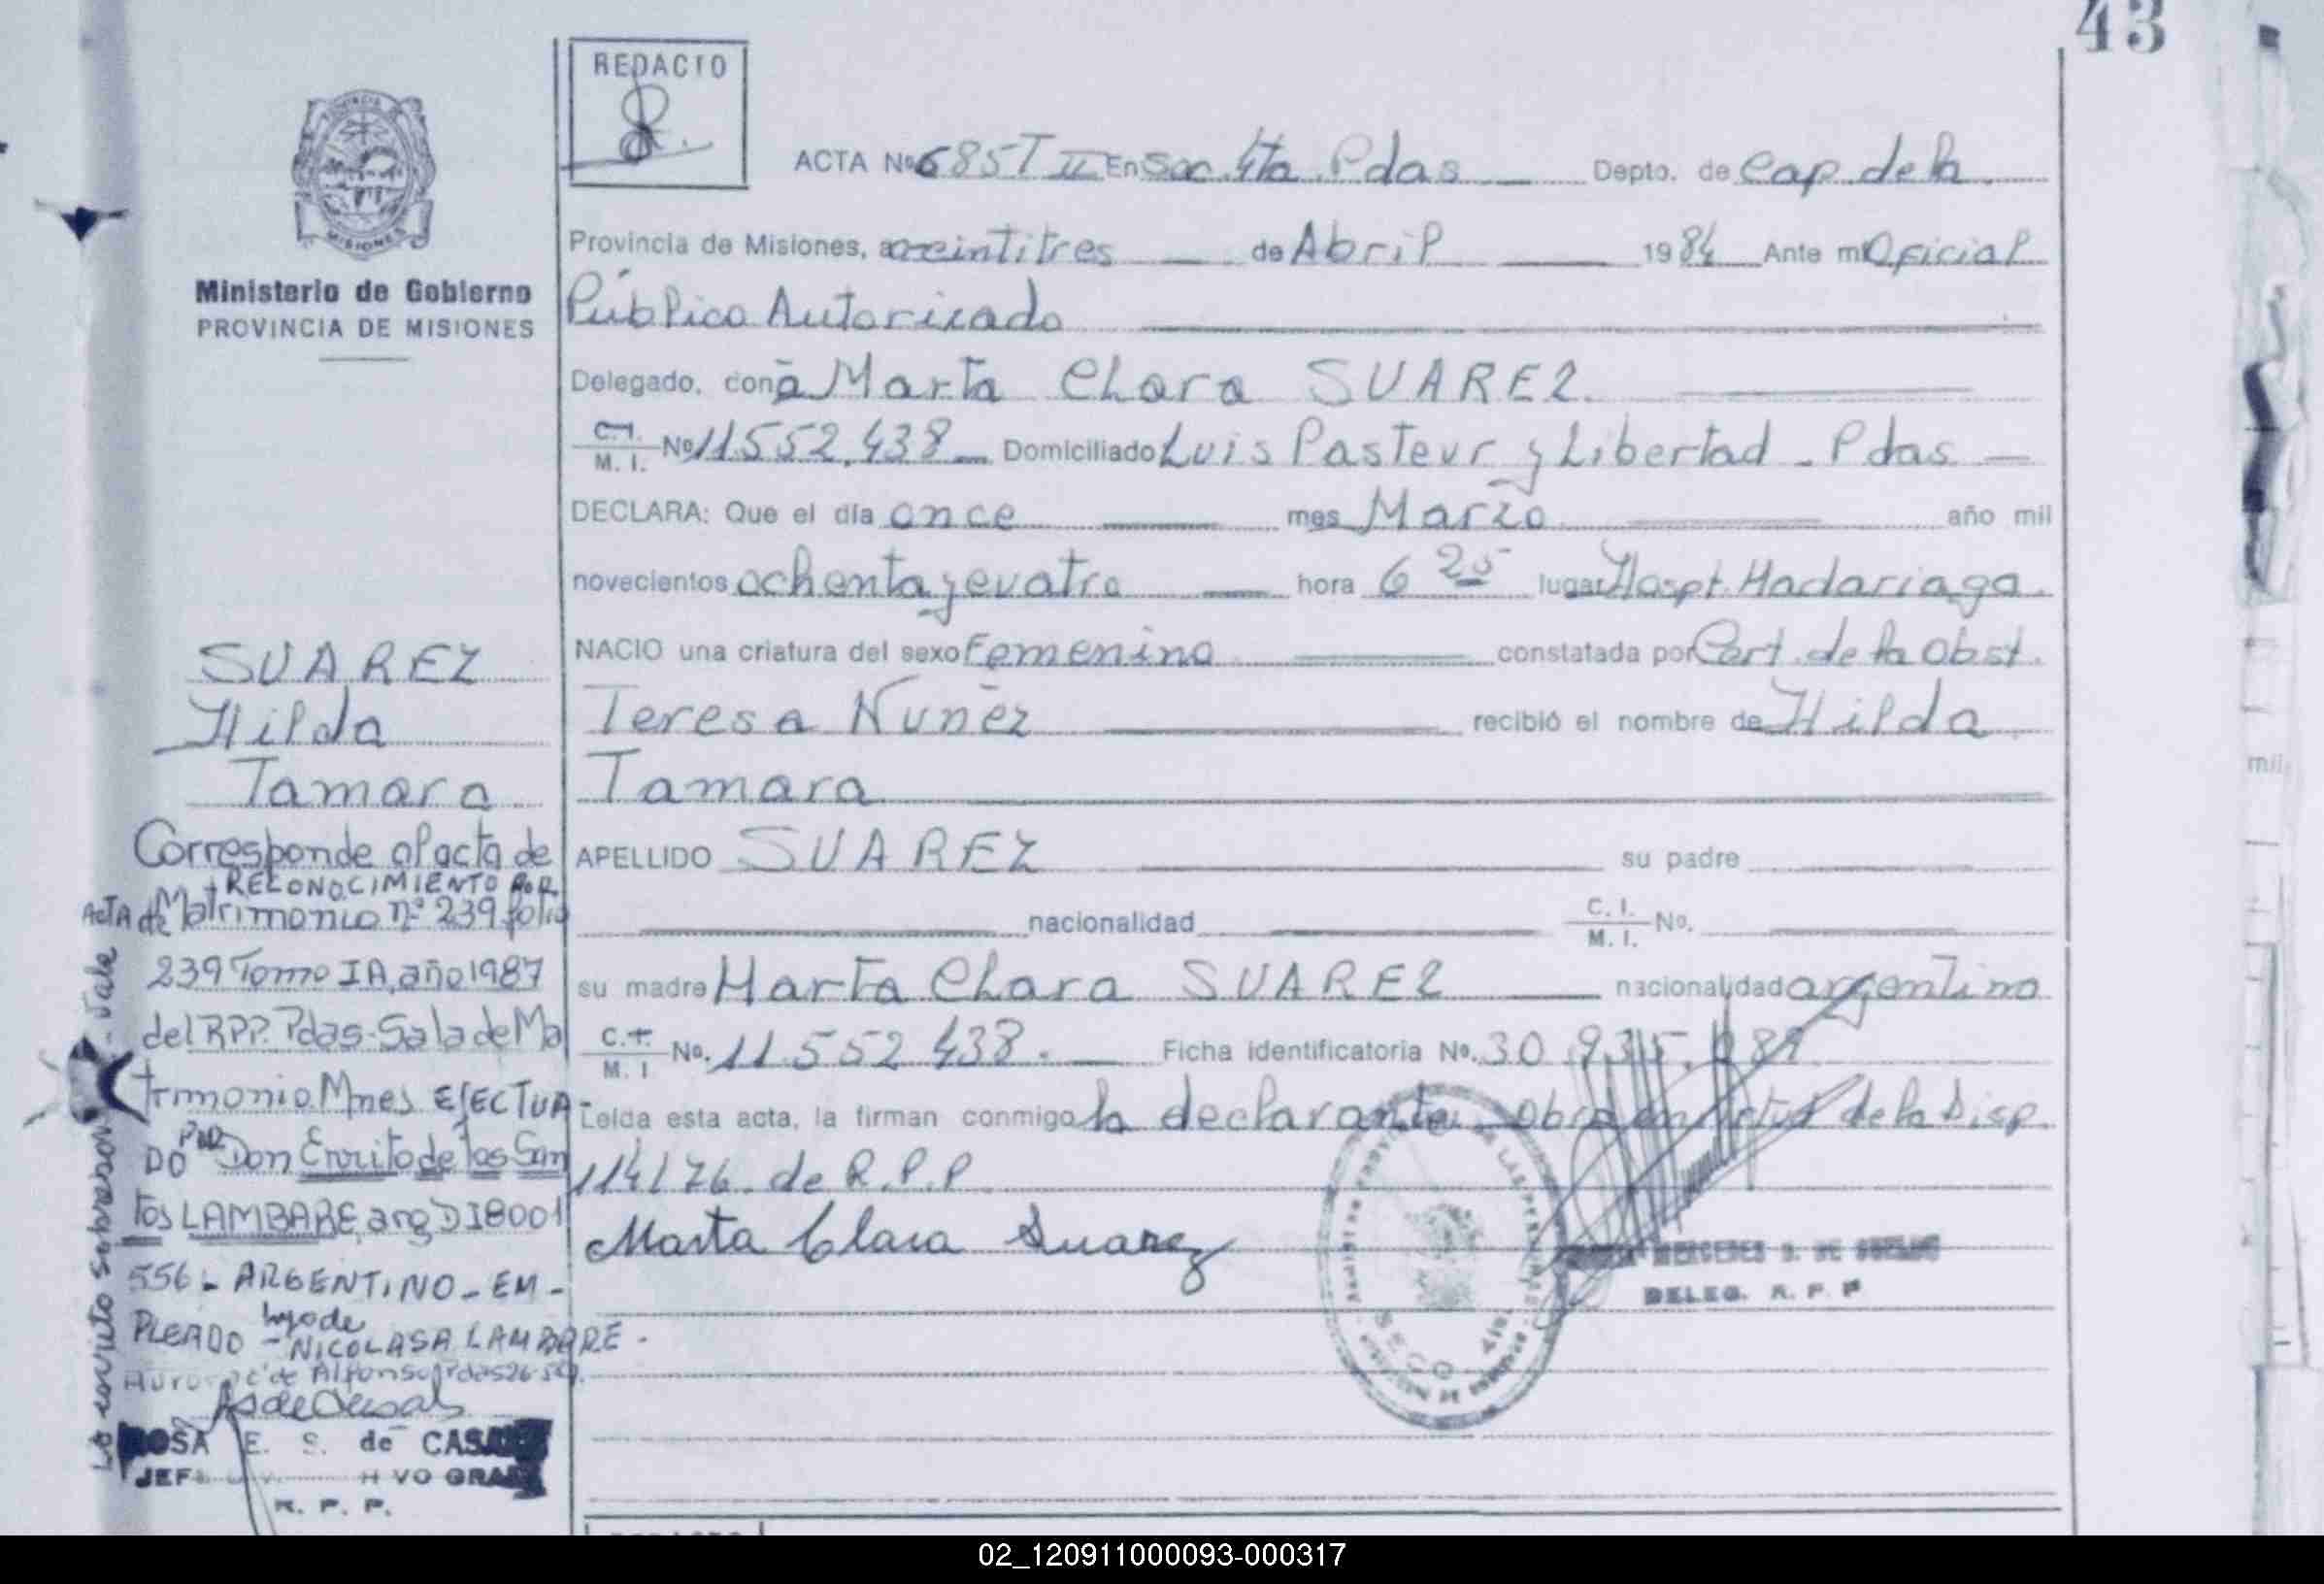 43
REDACTO
PROVINCIA DE
MISIONES
Ministerio de Gobierno
PROVINCIA DE MISIONES
ACTA Nº 685 T II En Sec. 4ta. Pdas Depto. de Cap. de la
Provincia de Misiones, a veintitres de Abril 1984 Ante mi Oficial
Público Autorizado
Delegado, con a Marta Clara SUAREZ.
C. I. M. I. Nº 11.552.438 Domiciliado Luis Pasteur y Libertad - Pdas
DECLARA: Que el día once mes Marzo año mil
novecientos ochenta y cuatro hora 6 25 lugar Hospt. Madariaga.
NACIO una criatura del sexo Femenino constatada por Cert. de la Obst.
Teresa Nuñez recibió el nombre de Hilda
Tamara
APELLIDO SUAREZ su padre
nacionalidad C. I. M. I. No.
su madre Marta Clara SUAREZ nacionalidad argentino
C. I. M. I No. 11.552.438. Ficha identificatoria No. 30.935.089
Leída esta acta, la firman conmigo la declarante. Obra en virtud de la Disp.
114/76. de R.P.P
Marta Clara Suarez
MERCEDES S. DE
DELEG. R. P. P
SUAREZ
Hilda
Tamara
Corresponde al acta de
+ RECONOCIMIENTO POR
ACTA de Matrimonio nº 239 folio
239 Tomo IA, año 1987
del RPP. Pdas-Sala de Ma
trimonio Mnes EFECTUA-
DO POR Don Evorito de los San
tos LAMBARE, arg DI 8001
556 - ARGENTINO - EM-
PLEADO - hijo de NICOLASA LAMBARE -
de Alfonso Pdas 26
ROSA E. S. de CASALS
JEF VO GRAL
R. P. P.
Lo escrito sobrerason Vale
mil
02_120911000093-000317